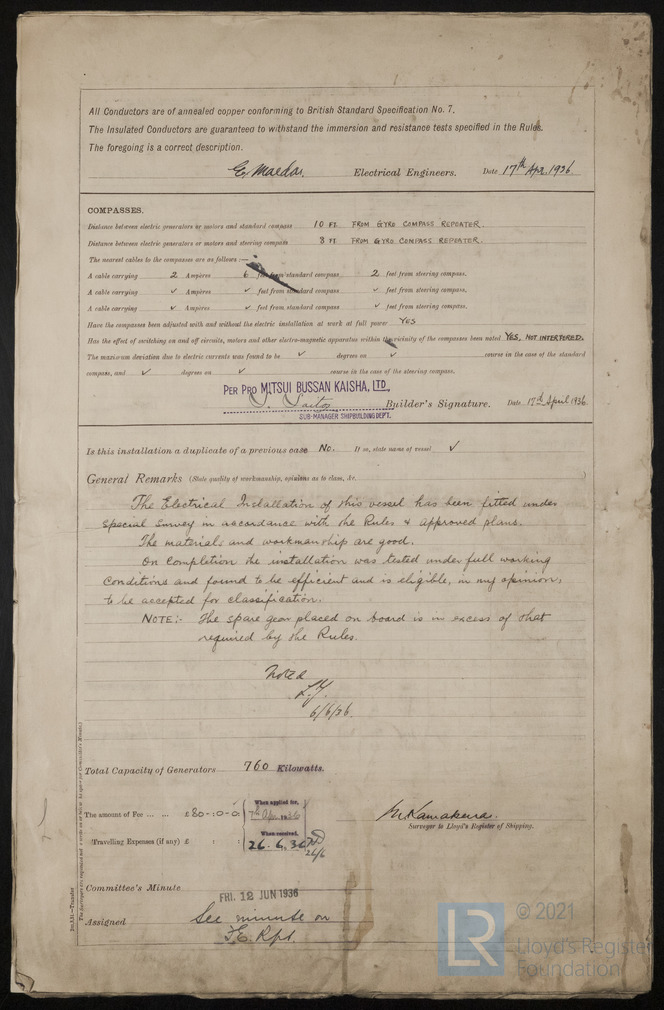 All Conductors are of annealed copper conforming to British Standard Specification No. 7.
The Insulated Conductors are guaranteed to withstand the immersion and resistance tests specified in the Rules.
The foregoing is a correct description.
E. Maeda. Electrical Engineers. Date 17th Apr. 1936
COMPASSES.
Distance between electric generators or motors and standard compass 10 FT FROM GYRO COMPASS REPEATER.
Distance between electric generators or motors and steering compass 8 FT FROM GYRO COMPASS REPEATER.
The nearest cables to the compasses are as follows:—
A cable carrying 2 Ampères 6 feet from standard compass 2 feet from steering compass.
A cable carrying ✓ Ampères ✓ feet from standard compass ✓ feet from steering compass.
A cable carrying ✓ Ampères ✓ feet from standard compass ✓ feet from steering compass.
Have the compasses been adjusted with and without the electric installation at work at full power YES
Has the effect of switching on and off circuits, motors and other electro-magnetic apparatus within the vicinity of the compasses been noted YES, NOT INTERFERED.
The maximum deviation due to electric currents was found to be ✓ degrees on ✓ course in the case of the standard
compass, and ✓ degrees on ✓ course in the case of the steering compass.
PER PRO MITSUI BUSSAN KAISHA, LTD.,
Saito Builder's Signature. Date 17th April 1936
SUB-MANAGER SHIPBUILDING DEPT.
Is this installation a duplicate of a previous case No. If so, state name of vessel ✓
General Remarks (State quality of workmanship, opinions as to class, &c. )
The Electrical Installation of this vessel has been fitted under
Special Survey in accordance with the Rules & approved plans.
The materials and workmanship are good.
On Completion the installation was tested under full working
Conditions and found to be efficient and is eligible, in my opinion,
to be accepted for classification.
NOTE:- The spare gear placed on board is in excess of that
required by the Rules.
Noted
6/6/36
Total Capacity of Generators 760 Kilowatts.
The amount of Fee ... ... £80-:0-:0 When applied for,
7th Apr. 1936
When received,
Travelling Expenses (if any) £ : : 26.6.36
26/6
Surveyor to Lloyd's Register of Shipping.
Committee's Minute FRI. 12 JUN 1936
Assigned See minute on
F.E. Rpt
LR © 2021
Lloyd's Register
Foundation